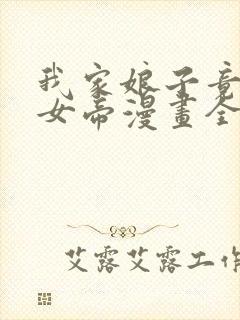 我家娘子竟
女帝漫畫全
艾露艾露工作